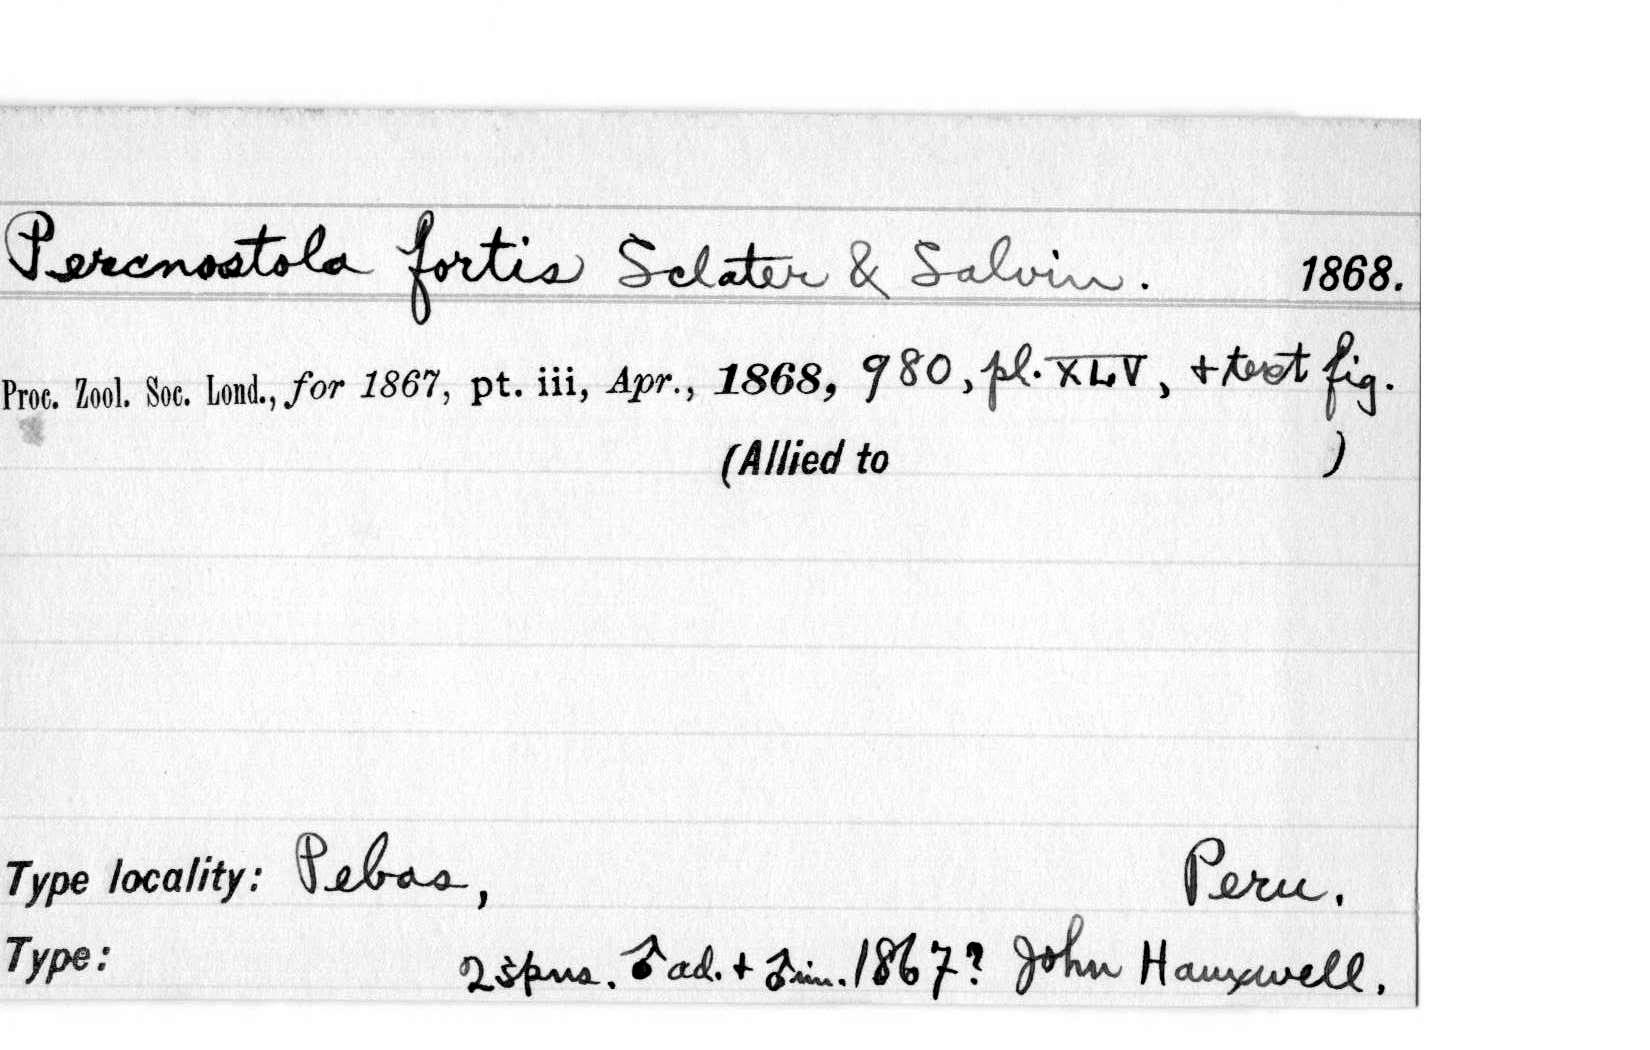 Percnostola fortis Sclater & Salvin. 1868.
Proc. Zool. Soc. Lond., for 1867, pt. iii, Apr., 1868, 980, pl. XLV, + text fig.
(Allied to )
Type locality: Pebas, Peru.
Type: 2 spns. ♂ ad. + ♂ im. 1867? John Hauxwell.